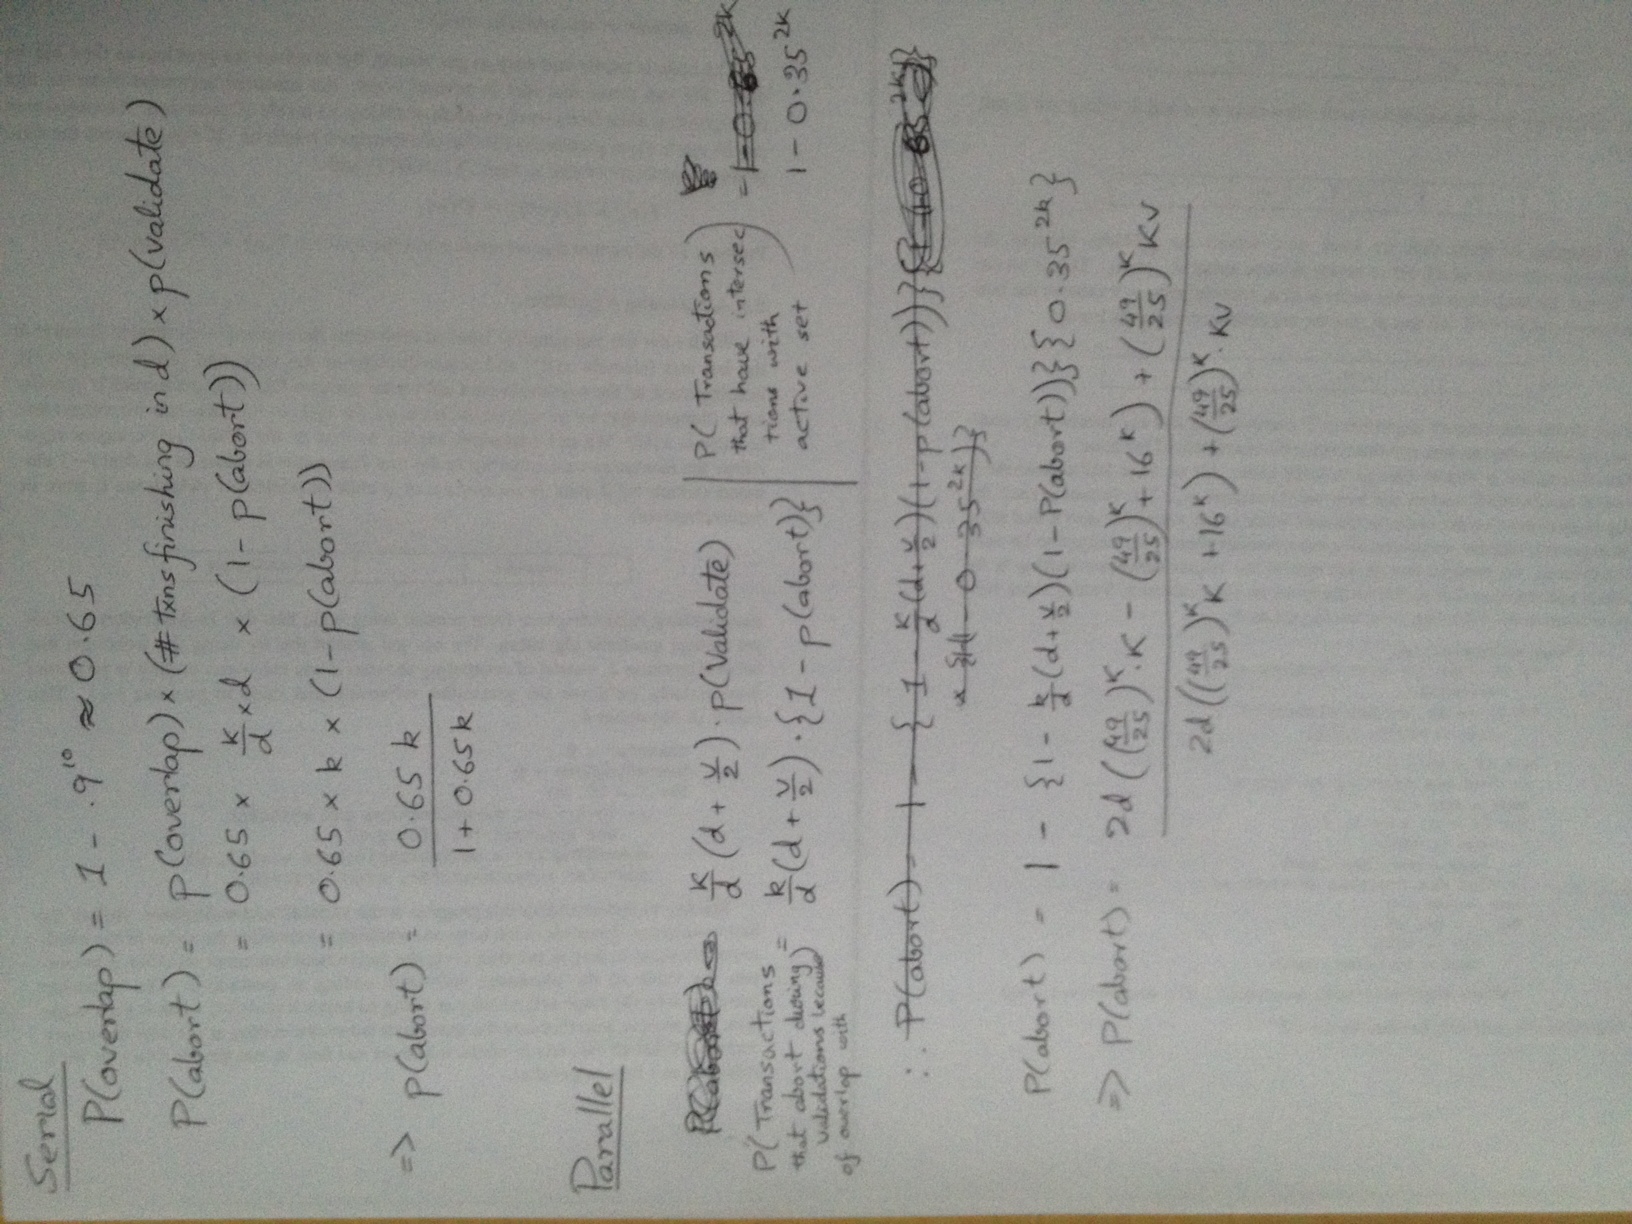 Serial
P(overlap) = 1 - .9^10 ≈ 0.65
P(abort) = p(overlap) × (# txns finishing in d) × p(validate)
= 0.65 × k/d × d × (1 - p(abort))
= 0.65 × k × (1 - p(abort))
=> p(abort) = 0.65 k / 1 + 0.65 k
Parallel
k/d (d + v/2) · p(validate)
P( Transactions that abort during validations because of overlap with = k/d (d + v/2) · {1 - p(abort)}
P( Transactions that have intersections with active set ) = 1 - 0.65^2k
1 - 0.35^2k
∴ P(abort) = 1 - { 1 - k/d (d + v/2)(1 - p(abort))}
× {1(1 - 0.35^2k)}
P(abort) = 1 - {1 - k/d (d + v/2)(1 - P(abort))}{0.35^2k}
=> P(abort) = 2d((49/25)^k · k - (49/25)^k + 16^k) + (49/25)^k kv
2d((49/25)^k k + 16^k) + (49/25)^k · kv